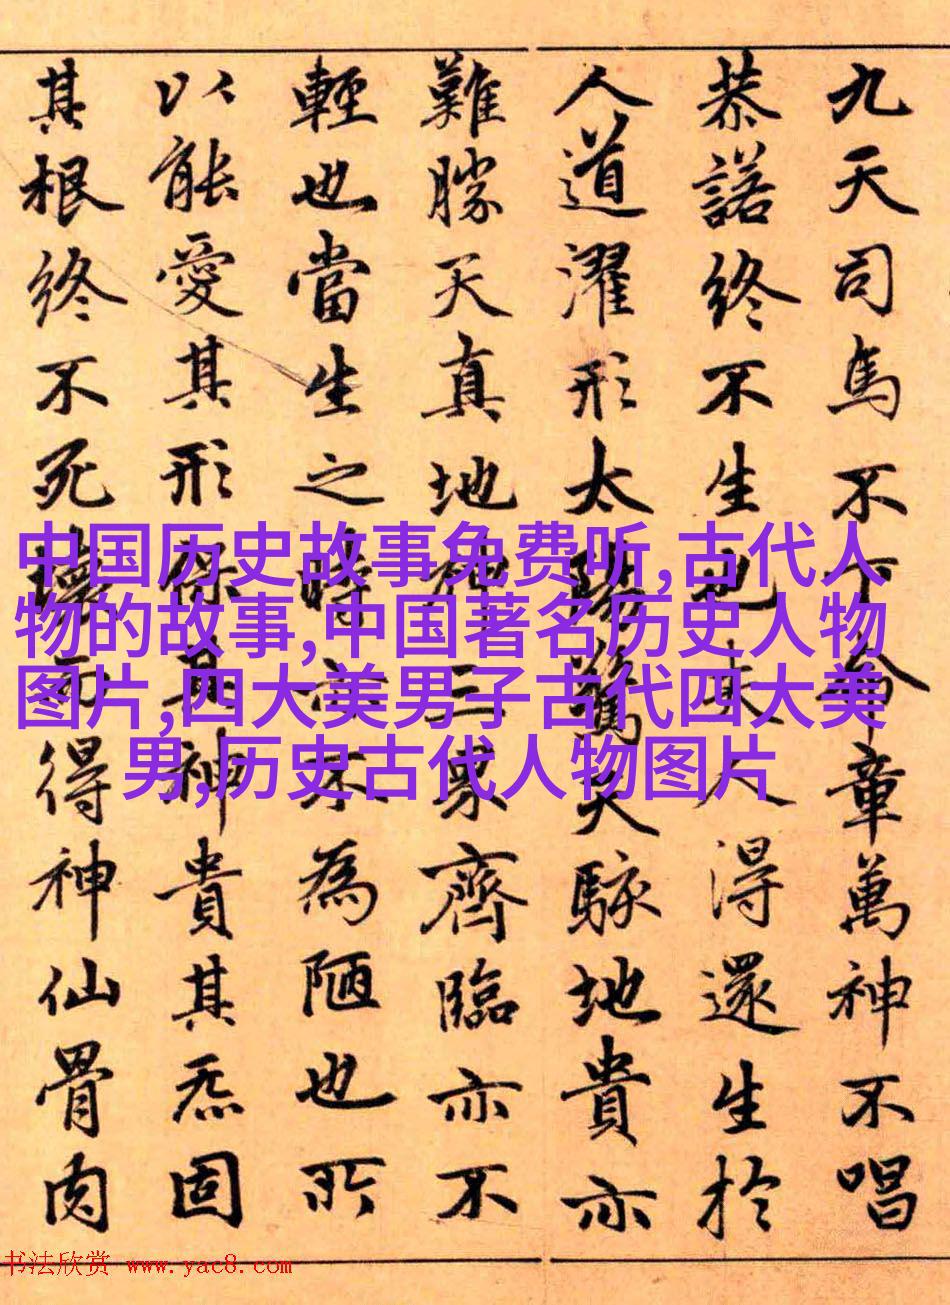 九天司馬不下命章萬神不唱
恭諾終不生也夫人得還生於
人道濯形太陽驚天駭地貴亦
難勝天真地神三界齊臨亦不
輕也當生之時亦不為陋也所
以能愛其形保其神貴其炁固
其根終不死壞而得神仙骨肉
中国历史故事免费听,古代人
物的故事,中国著名历史人物
图片,四大美男子古代四大美
男,历史古代人物图片
书法欣赏 www.yac8.com